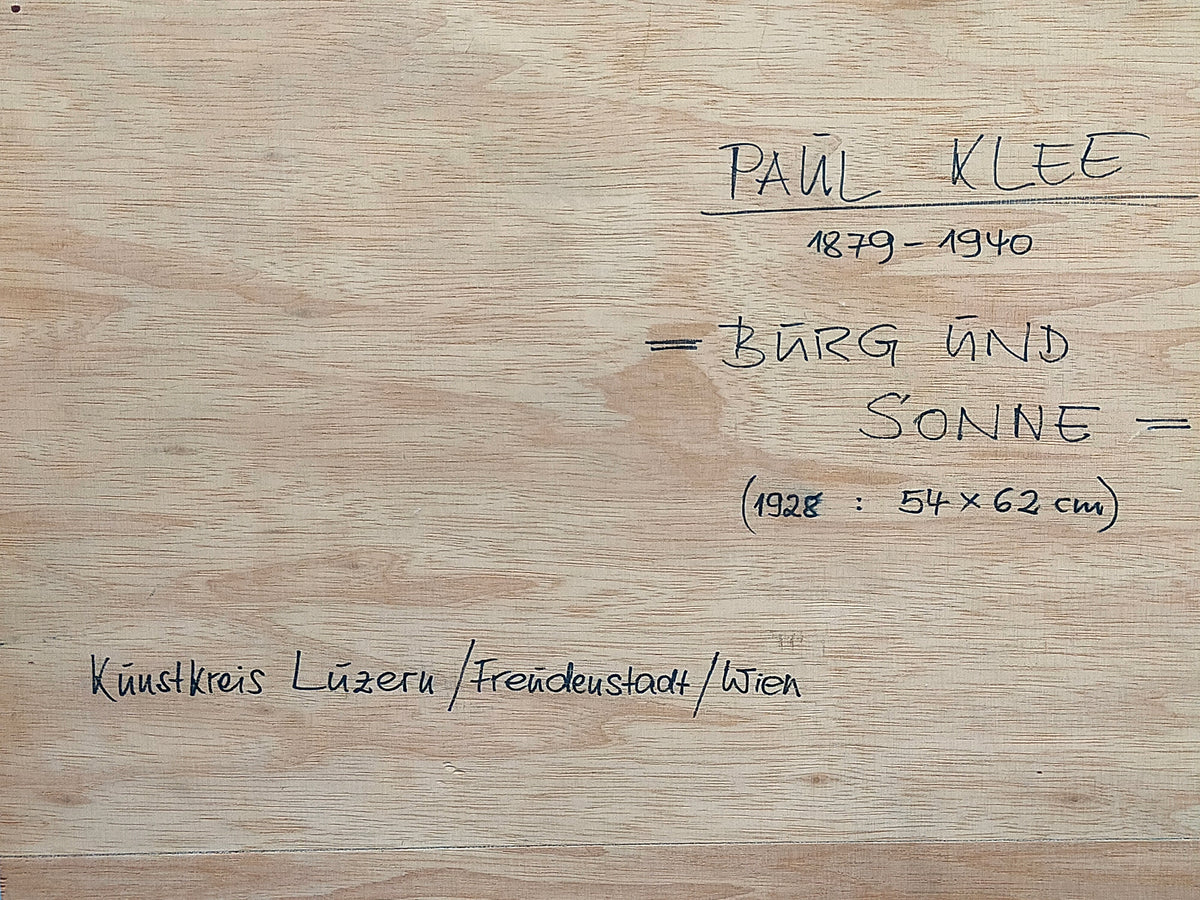 PAUL KLEE
1879 - 1940
= BURG UND
SONNE =
(1928 : 54 x 62 cm)
Kunstkreis Luzern / Freudenstadt / Wien